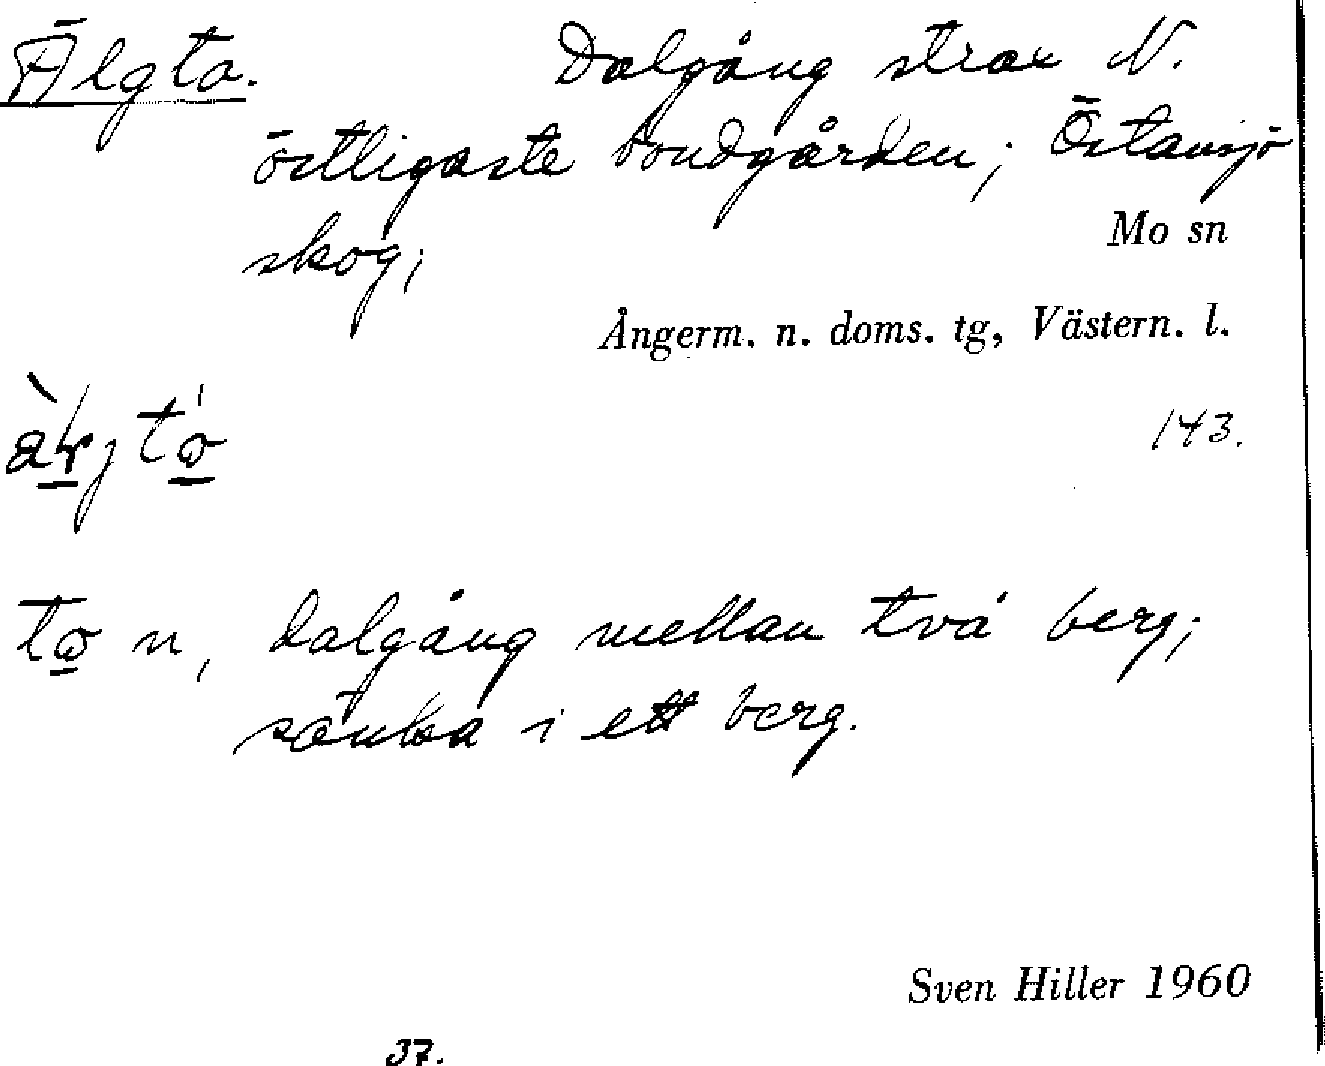 Älgta. Dalgång strax N.
östligaste bondgården; Östansjö
skog;
Mo sn
Ångerm. n. doms. tg, Västern. l.
143.
n, dalgång mellan två berg;
sänka i ett berg.
Sven Hiller 1960
37.